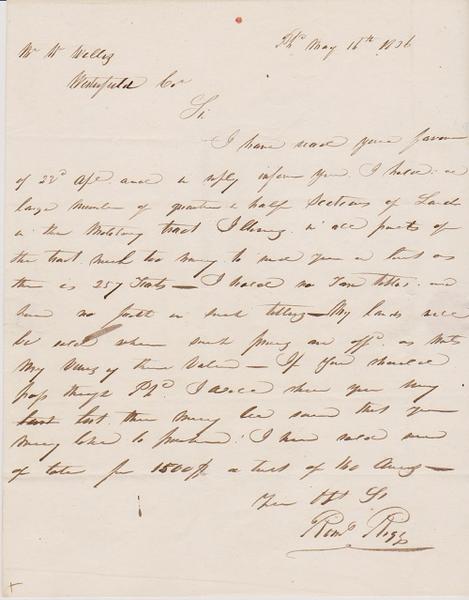 Pha May 16th 1836
Mr W Wells
Westfield Co
Sir
I have recd your favour
of 22d Apl. and in reply inform you I hold a
large number of quarter & half Sections of Land
in the Military tract Illinois in all parts of
the tract much too many to send you a list as
there is 257 Tracts — I hold no Tax titles and
have no faith in such titles — My lands will
be sold when such prices are offd. as meets
my views of their value — If you should
pass through Pha. I will show you my
list, there may be some that you
may like to purchase. I have sold one
of late for 1500$ a tract of 160 Acres —
Your Obt St
Romd. Rigg